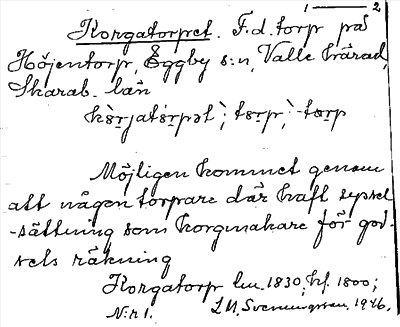 1 — 2
Korgatorpet. F.d. torp på
Höjentorp, Eggby s:n, Valle härad,
Skarab. län
kòrjatórpət; tɵrp, -tɵrp
Möjligen kommet genom
att någon torpare där haft syssel-
-sättning som korgmakare för god-
sets räkning
Korgatorp hu. 1830, hf. 1800;
N:r 1. L M, Svenningsson. 1926.